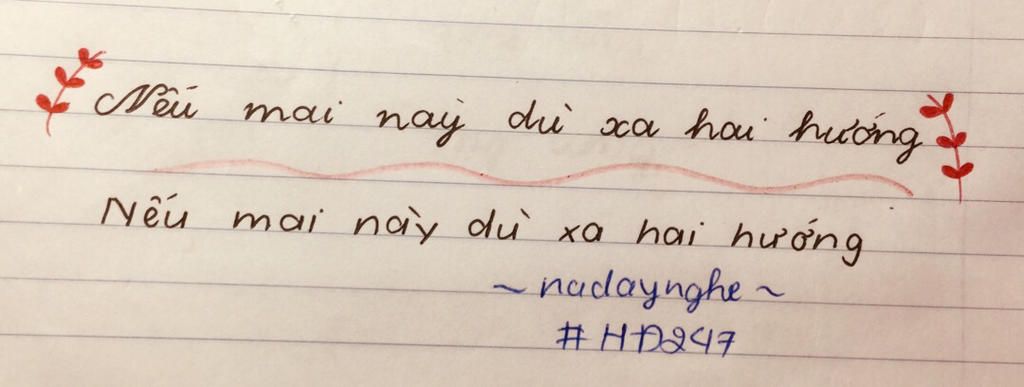 Nếu mai này dù xa hai hướng
Nếu mai này dù xa hai hướng
~ nadaynghe ~
#HĐ247